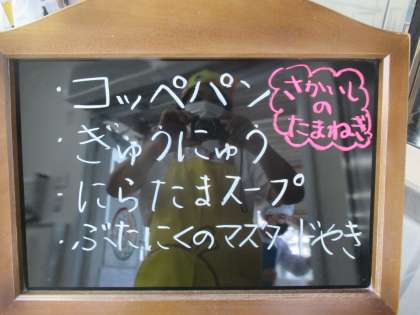 ・コッペパン
・ぎゅうにゅう
・にらたまスープ
・ぶたにくのマスタードやき
さかいし
の
たまねぎ